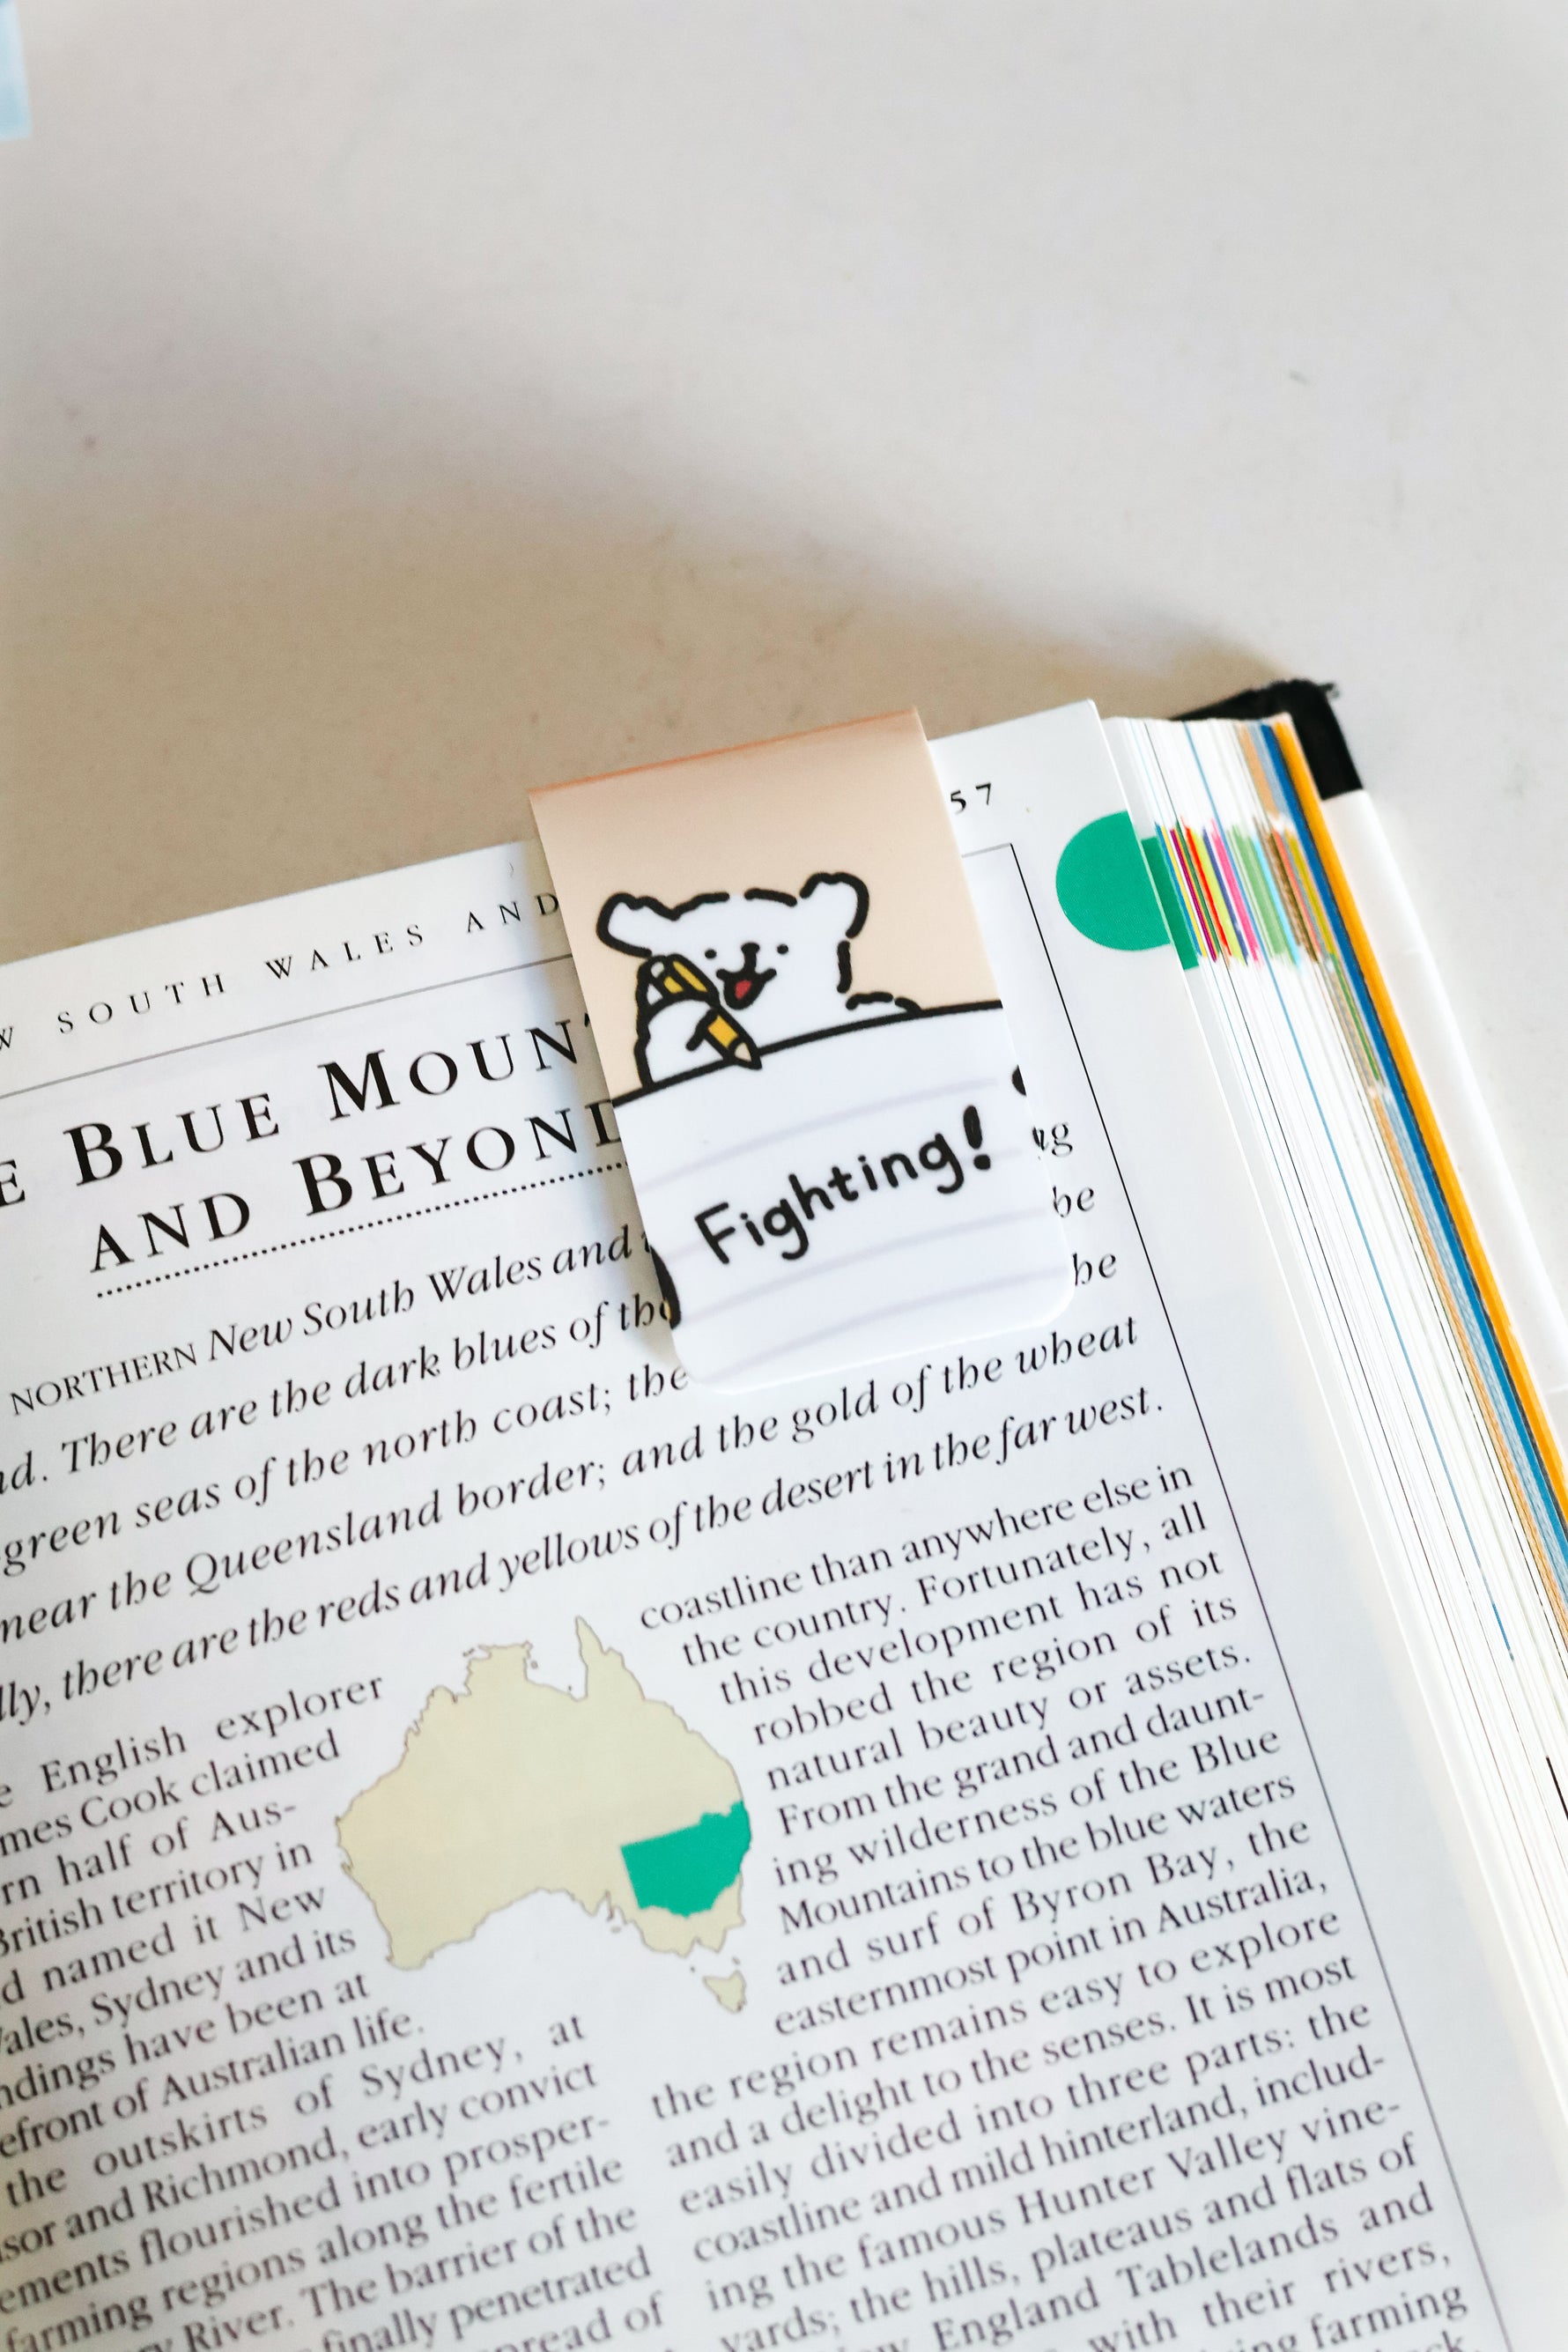 SOUTH WALES AND
57
BLUE MOUN
AND BEYOND
Fighting!
NORTHERN New South Wales and
There are the dark blues of the
be
green seas of the north coast; the
be
near the Queensland border; and the gold of the wheat
there are the reds and yellows of the desert in the far west.
English explorer
Cook claimed
half of Aus-
British territory in
named it New
Wales, Sydney and its
have been at
of Australian life.
the outskirts of Sydney, at
and Richmond, early convict
flourished into prosper-
farming regions along the fertile
River. The barrier of the
finally penetrated
spread of
coastline than anywhere else in
the country. Fortunately, all
this development has not
robbed the region of its
natural beauty or assets.
From the grand and daunt-
ing wilderness of the Blue
Mountains to the blue waters
and surf of Byron Bay, the
easternmost point in Australia,
the region remains easy to explore
and a delight to the senses. It is most
easily divided into three parts: the
coastline and mild hinterland, includ-
ing the famous Hunter Valley vine-
yards; the hills, plateaus and flats of
England Tablelands and
with their rivers,
farming